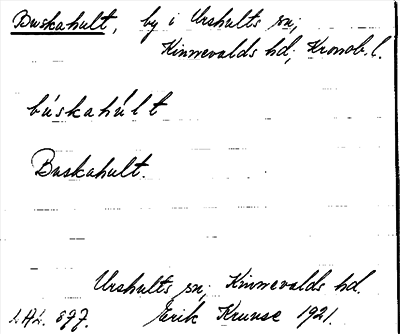 Buskahult, by i Urshults sn;
Kinnevalds hd; Kronob. l.
búskahúlt
Buskahult.
Urshults sn; Kinnevalds hd.
LAL. 897. Erik Kruuse 1921.